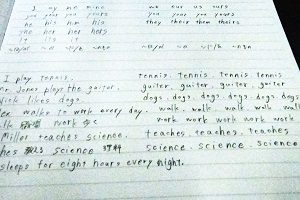 I my me mine we our us ours
you your you yours you your you yours
he his him his they their them theirs
she her her hers
it its it
I play tennis. Tennis. tennis. tennis. tennis
Mr. Jones plays the guitar. guitar. guitar. guitar. guitar
likes dogs. dogs. dogs. dogs. dogs. dogs.
walks to work every day. walk. walk. walk walk wal
work 歩く work work work work work
Miller teaches science. teaches. teaches. teaches
教える science 理科 science. science. science
sleeps for eight hours every night.